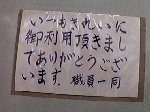 いつもきれいに
御利用頂きまし
てありがとうござ
います。職員一同